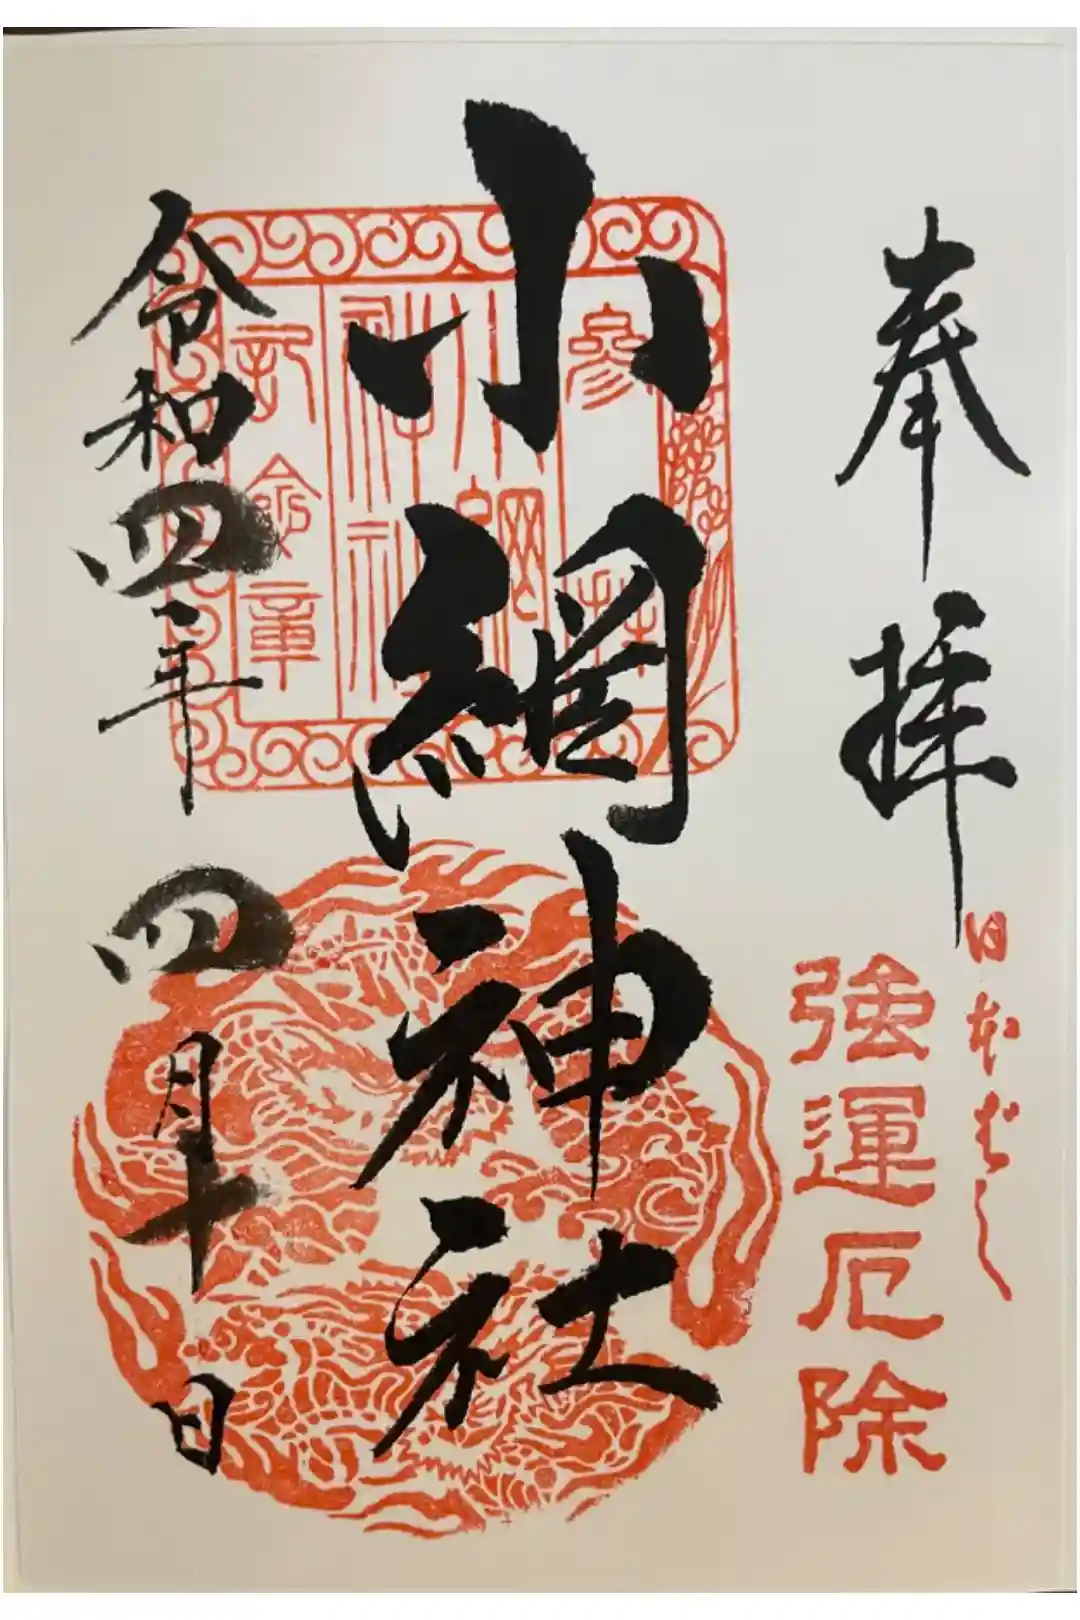 奉拝
日本ばし
強運厄除
小網神社
参拝
小網神社
記念章
令和四年
四月十日